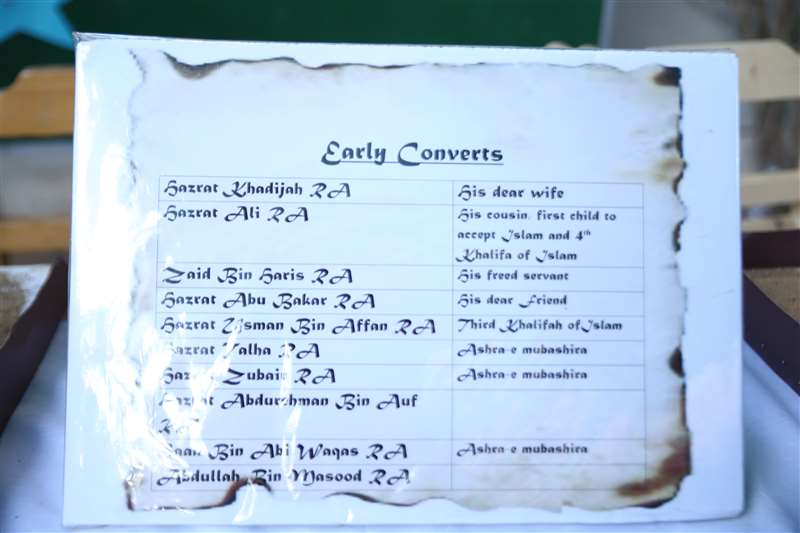 Early Converts
Hazrat Khadijah RA His dear wife
Hazrat Ali RA His cousin, first child to
accept Islam and 4th
Khalifa of Islam
Zaid Bin Haris RA His freed servant
Hazrat Abu Bakar RA His dear Friend
Hazrat Usman Bin Affan RA Third Khalifah of Islam
Hazrat Talha RA Ashra-e mubashira
Hazrat Zubair RA Ashra-e mubashira
Hazrat Abdurehman Bin Auf
RA
Saad Bin Abi Waqas RA Ashra-e mubashira
Abdullah Bin Masood RA